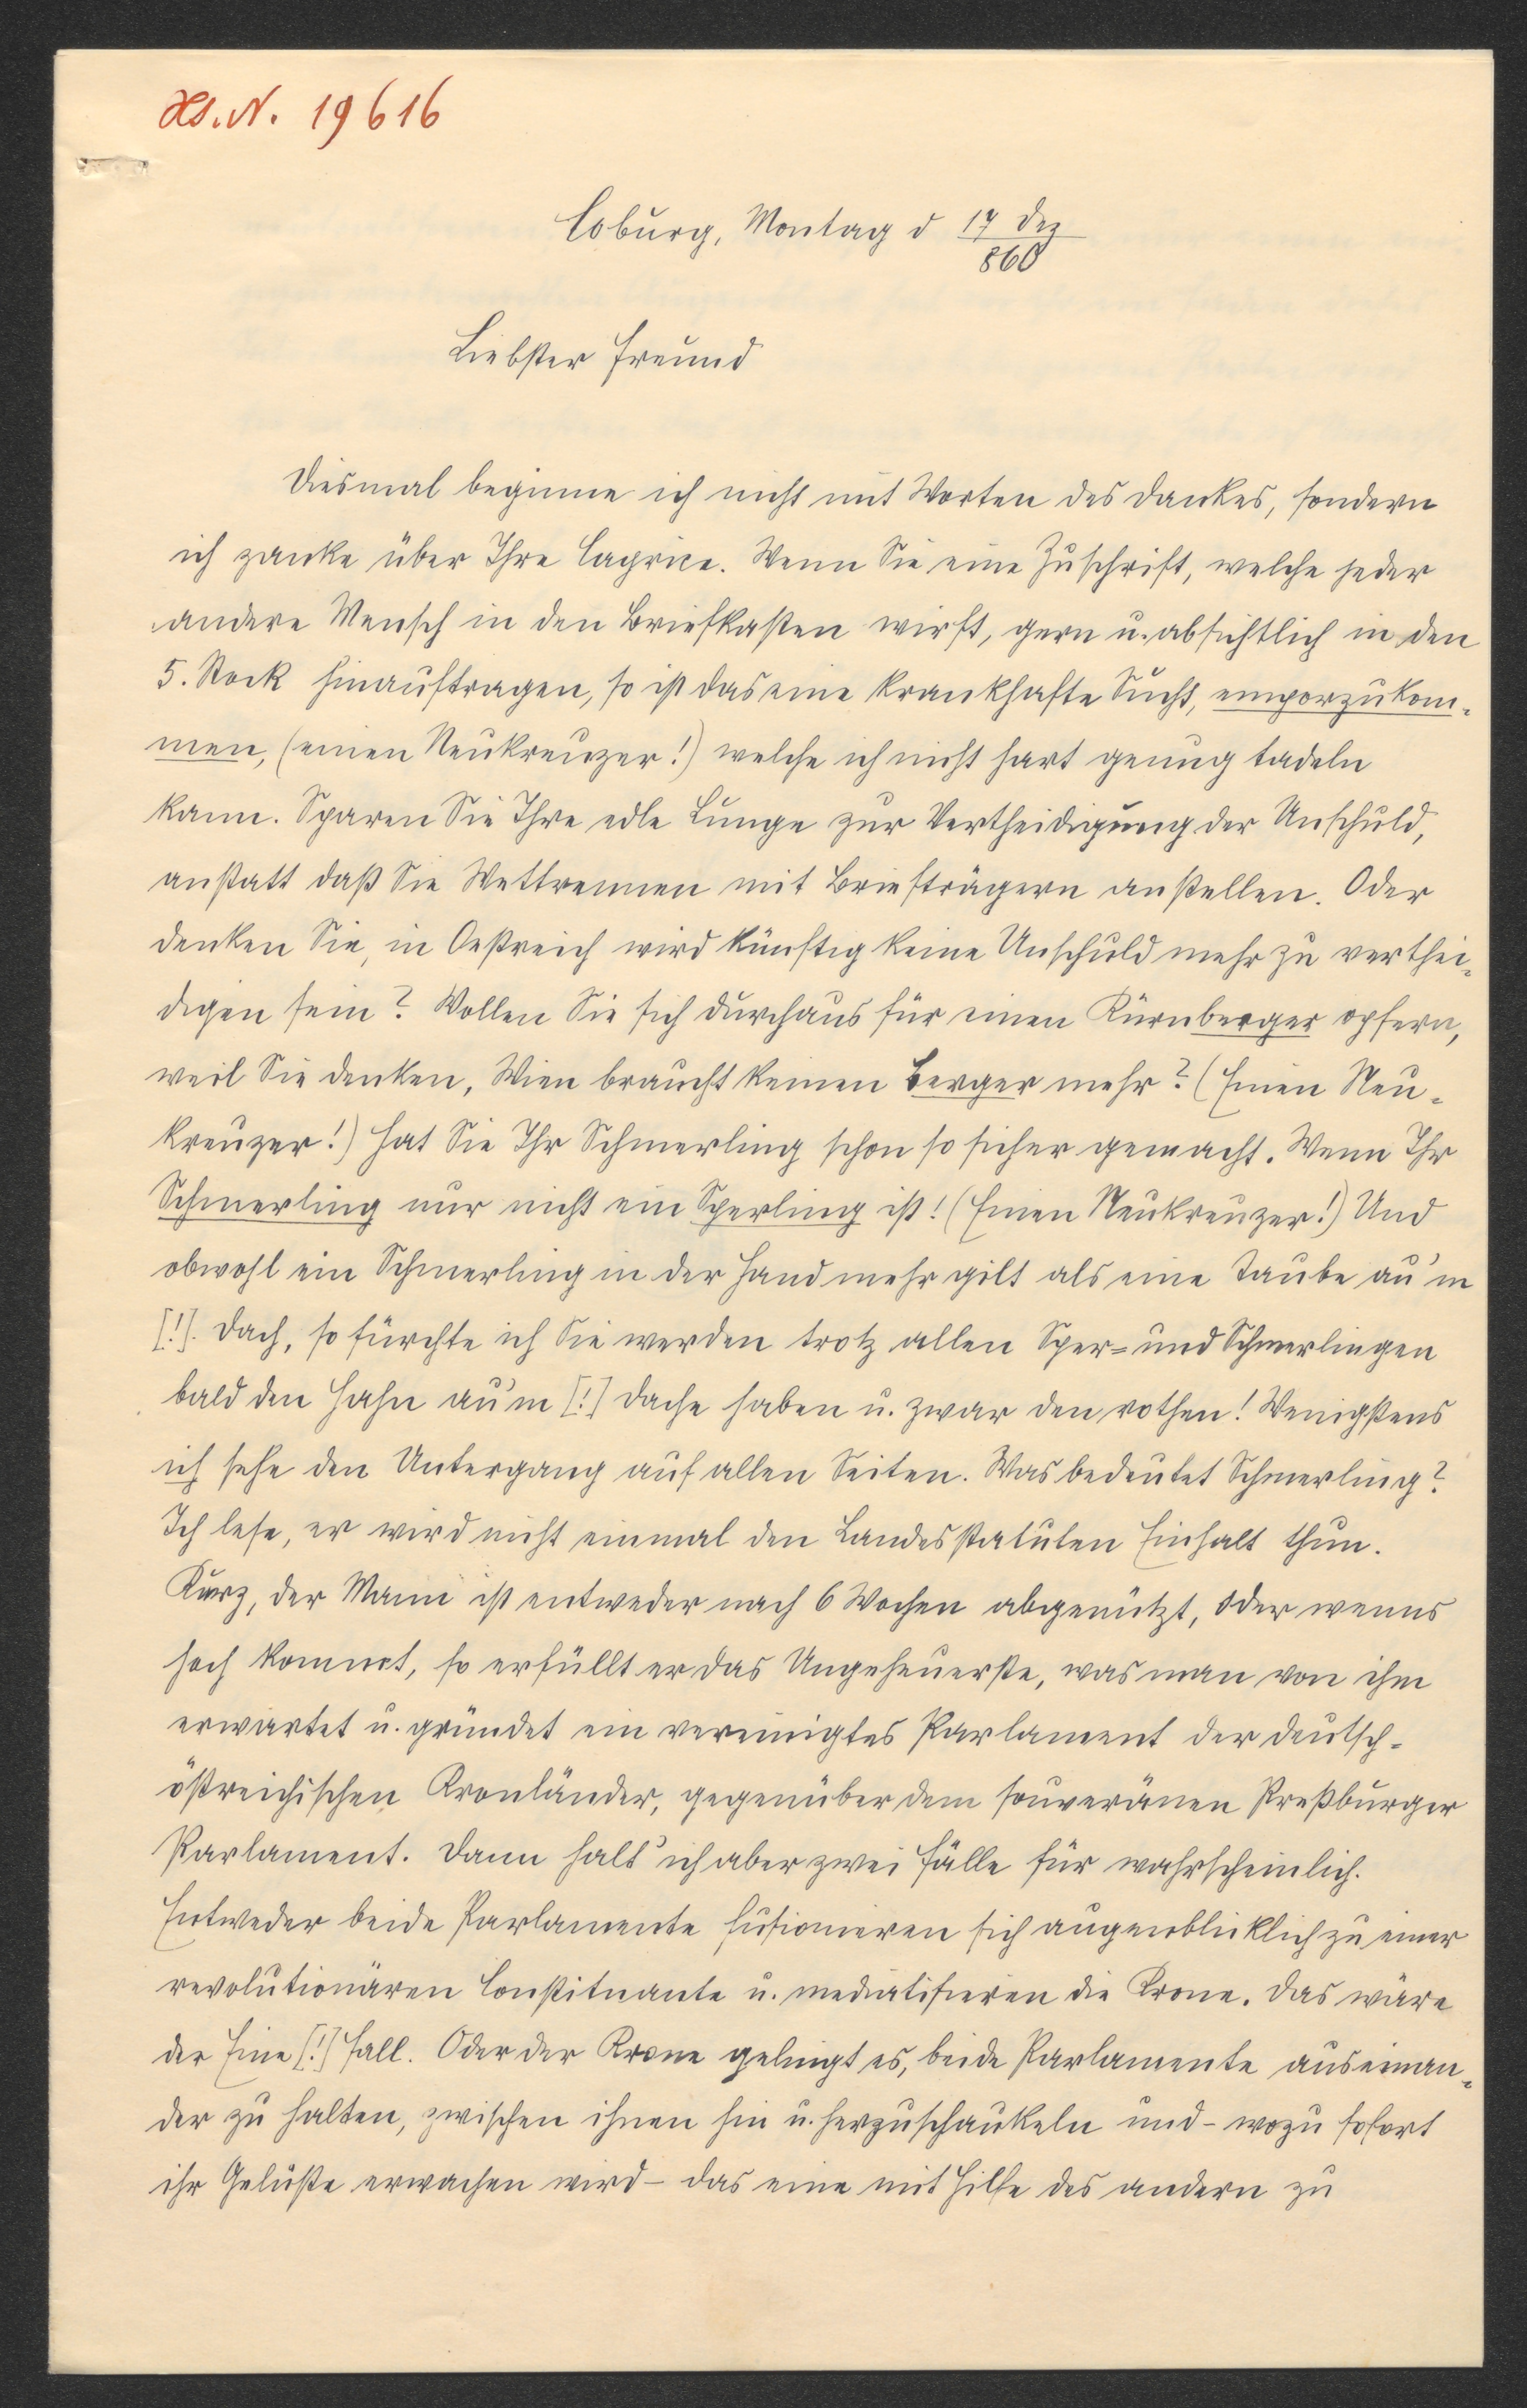 Hs. N. 19616
Coburg, Montag d 17 Dez
860
Liebster Freund
Diesmal beginne ich nicht mit Worten des Dankes, sondern
ich zanke über Ihre Caprice. Wenn Sie eine Zuschrift, welche jeder
andere Mensch in den Briefkasten wirft, gern u. absichtlich in den
5. Stock hinauftragen, so ist das eine krankhafte Sucht, emporzukom-
men, (einen Neukreuzer!) welche ich nicht hart genug tadeln
kann. Sparen Sie Ihre edle Lunge zur Vertheidigung der Unschuld,
anstatt daß Sie Wettrennen mit Briefträgern anstellen. Oder
denken Sie, in Oestreich wird künftig keine Unschuld mehr zu verthei-
digen sein? Wollen Sie sich durchaus für einen Kürnberger opfern,
weil Sie denken, Wien braucht keinen Berger mehr? (Einen Neu-
kreuzer!) Hat Sie Ihr Schmerling schon so sicher gemacht. Wenn Ihr
Schmerling nur nicht ein Sperling ist! (Einen Neukreuzer!) Und
obwohl ein Schmerling in der Hand mehr gilt als eine Taube au'm
[!]. Dach, so fürchte ich Sie werden trotz allen Sper= und Schmerlingen
bald den Hahn au'm [!] Dache haben u. zwar den rothen! Wenigstens
ich sehe den Untergang auf allen Seiten. Was bedeutet Schmerling?
Ich lese, er wird nicht einmal den Landesstatuten Einhalt thun.
Kurz, der Mann ist entweder nach 6 Wochen abgenützt, oder wenns
hoch kommt, so erfüllt er das Ungeheuerste, was man von ihm
erwartet u. gründet ein vereinigtes Parlament der deutsch-
östreichischen Kronländer, gegenüber dem souveränen Preßburger
Parlament. Dann halt' ich aber zwei Fälle für wahrscheinlich.
Entweder beide Parlamente fusionieren sich augenblicklich zu einer
revolutionären Constituante u. mediatisieren die Krone. Das wäre
der Eine [!] Fall. Oder der Krone gelingt es, beide Parlamente auseinan-
der zu halten, zwischen ihnen hin u. herzuschaukeln und - wozu sofort
ihr Gelüste erwachen wird - das eine mit Hilfe des andern zu